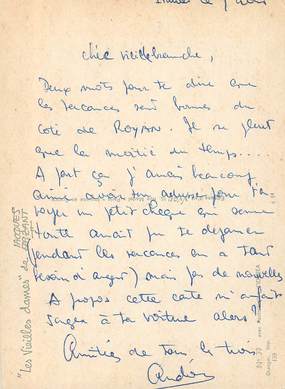 chère vieille branche,
Deux mots pour te dire que
les vacances sont bonnes du
côté de ROYAN. Il ne pleut
que la moitié du temps....
A part ça j'aurais beaucoup
aimé avoir ton adresse pour t'en-
voyer un petit chèque qui somme
toute aurait pu te dépanner
pendant les vacances (on a tant
besoin d'argent) mais pas de nouvelles
A propos cette carte m'a fait
songer à ta voiture alors!
Amitiés de tous les trois
"Les Vieilles dames" de JACQUES
FAIZANT